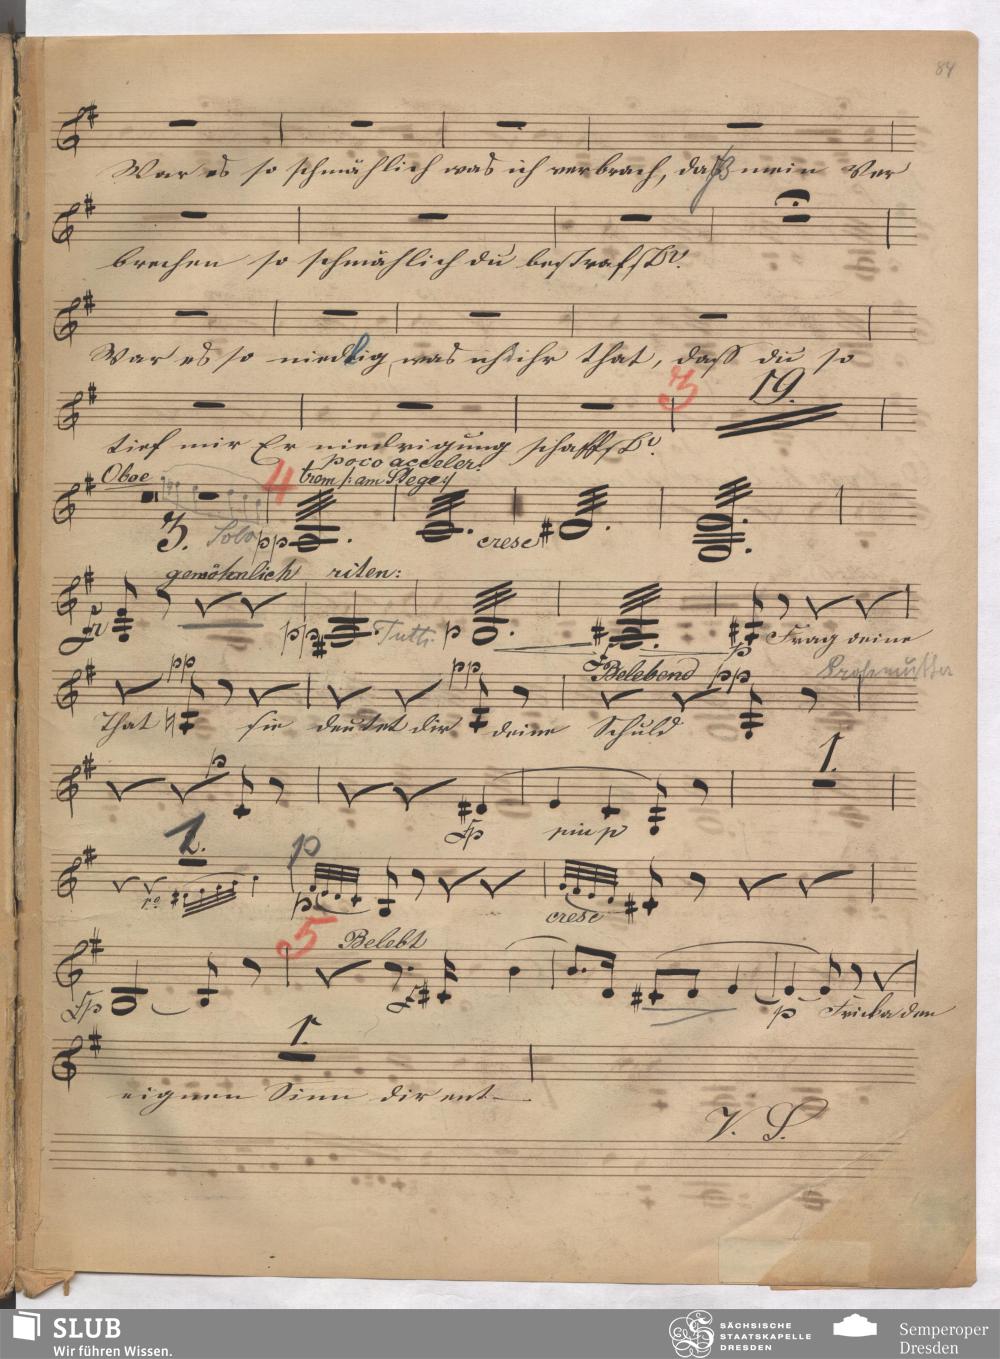 84
War es so schmählich was ich verbrach, daß mein Ver
brechen so schmählich du bestrafst?
War es so niedrig was ich ihr that, dass du so
3
19.
tief mir Er niedrigung schaffst?
poco acceler:
Oboe
4
trem: am Stege
3.
Solo
pp
cresc
gewöhnlich riten:
pp
Tutti
p
p
Frag deine
pp
pp
Belebend
pp
That sie deutet dir deine Schuld
p
1.
fp
piu p
2.
p
p
cresc
5
Belebt
fp
f
p
Fricka den
1.
eignen Sinn dir ent-
V. S.
SLUB
Wir führen Wissen.
SÄCHSISCHE
STAATSKAPELLE
DRESDEN
Semperoper
Dresden